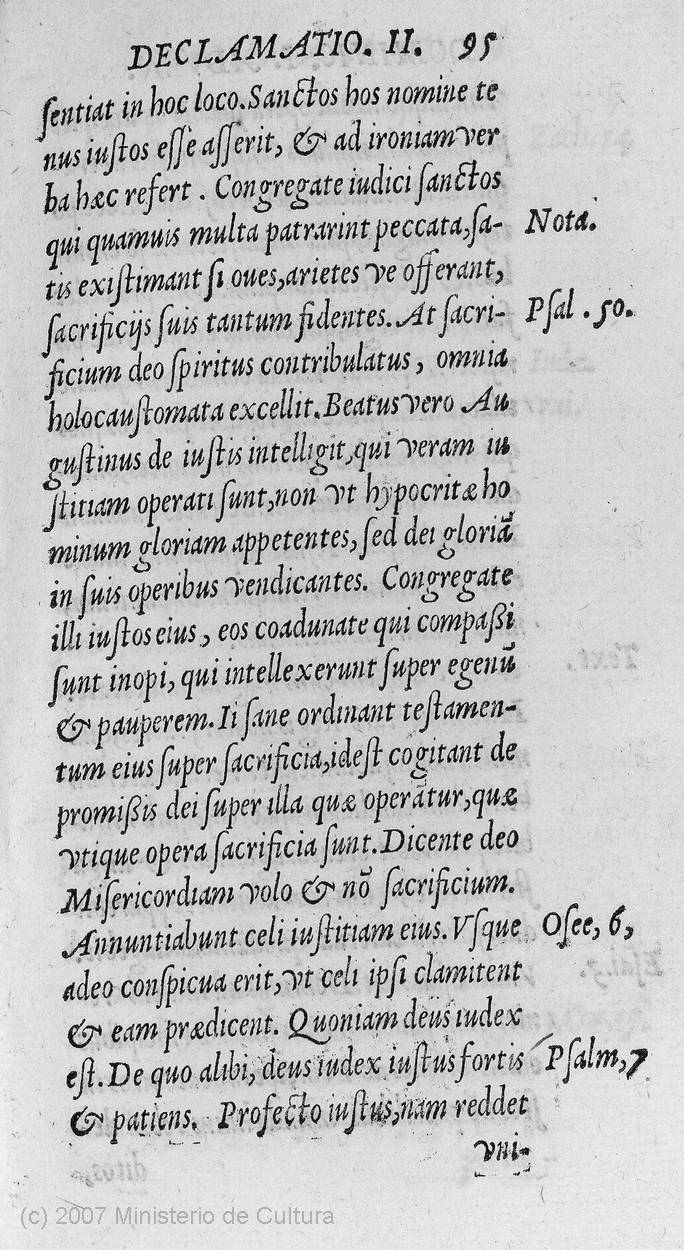 DECLAMATIO. II. 95
sentiat in hoc loco. Sanctos hos nomine te
nus iustos esse asserit, & ad ironiam ver
ba hæc refert. Congregate iudici sanctos
qui quamuis multa patrarint peccata, sa- Nota.
tis existimant si oues, arietes ve offerant,
sacrificijs suis tantum fidentes. At sacri- Psal. 50.
ficium deo spiritus contribulatus, omnia
holocaustomata excellit. Beatus vero Au
gustinus de iustis intelligit, qui veram iu
stitiam operati sunt, non vt hypocritæ ho
minum gloriam appetentes, sed dei gloriã
in suis operibus vendicantes. Congregate
illi iustos eius, eos coadunate qui compaßi
sunt inopi, qui intellexerunt super egenũ
& pauperem. Ii sane ordinant testamen-
tum eius super sacrificia, idest cogitant de
promißis dei super illa quæ operãtur, quæ
vtique opera sacrificia sunt. Dicente deo
Misericordiam volo & nõ sacrificium.
Annuntiabunt celi iustitiam eius. Vsque Osee, 6,
adeo conspicua erit, vt celi ipsi clamitent
& eam prædicent. Quoniam deus iudex
est. De quo alibi, deus iudex iustus fortis Psalm, 7
& patiens. Profecto iustus, nam reddet
vni-
(c) 2007 Ministerio de Cultura